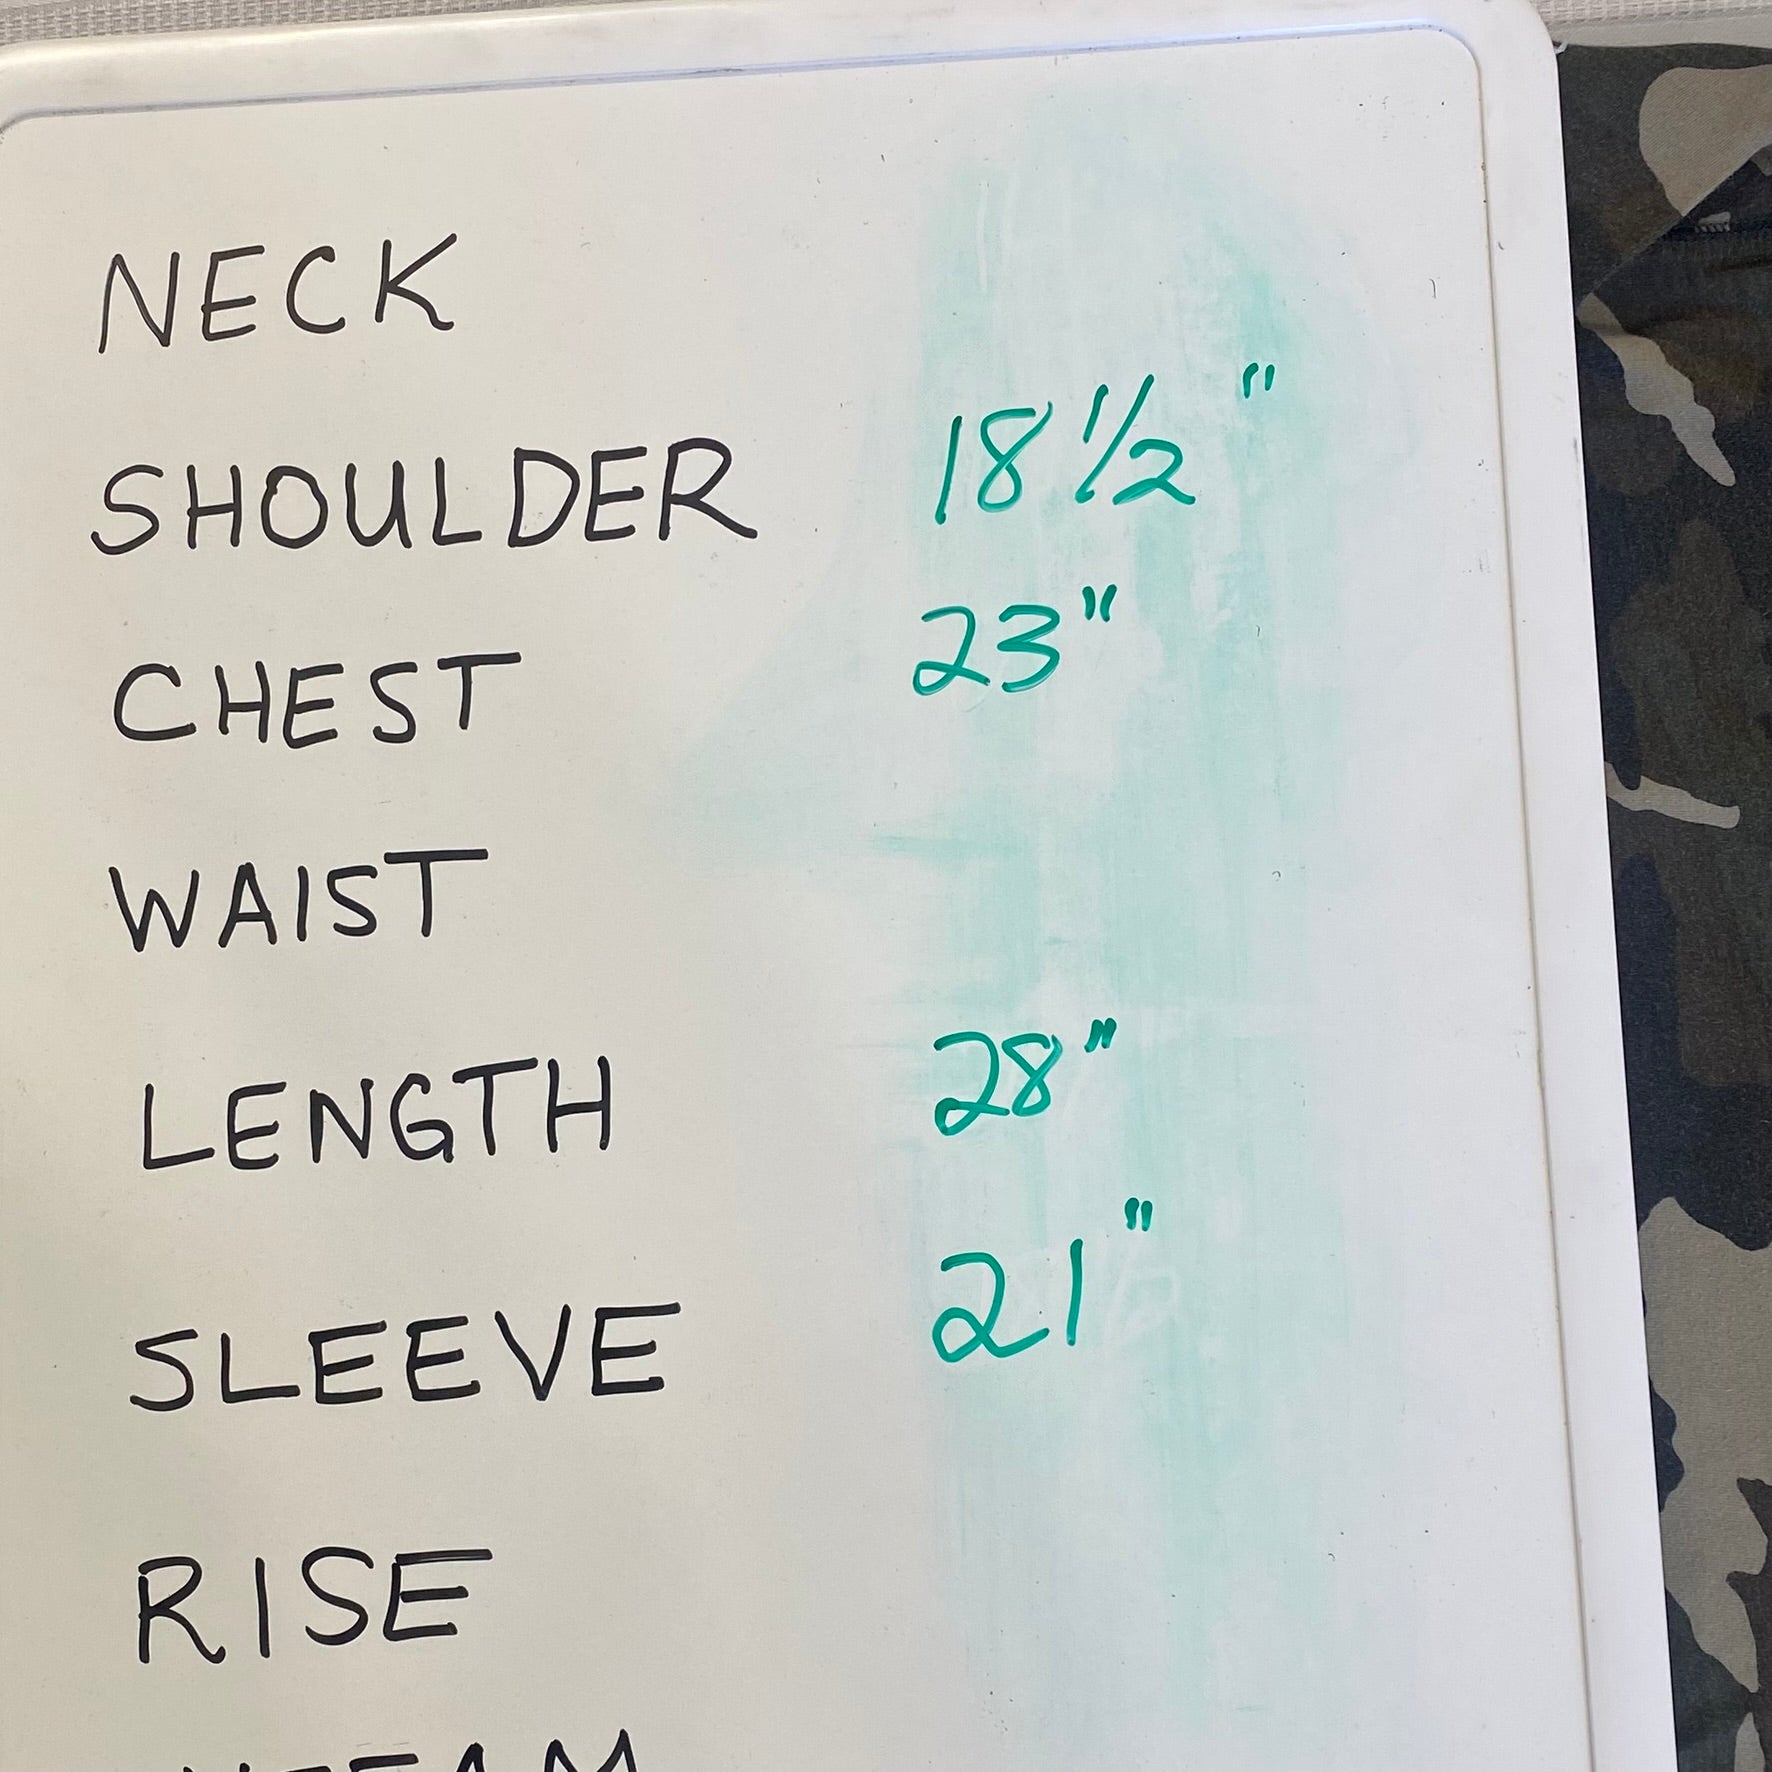 NECK
SHOULDER 18 1/2"
CHEST 23"
WAIST
LENGTH 28"
SLEEVE 21"
RISE